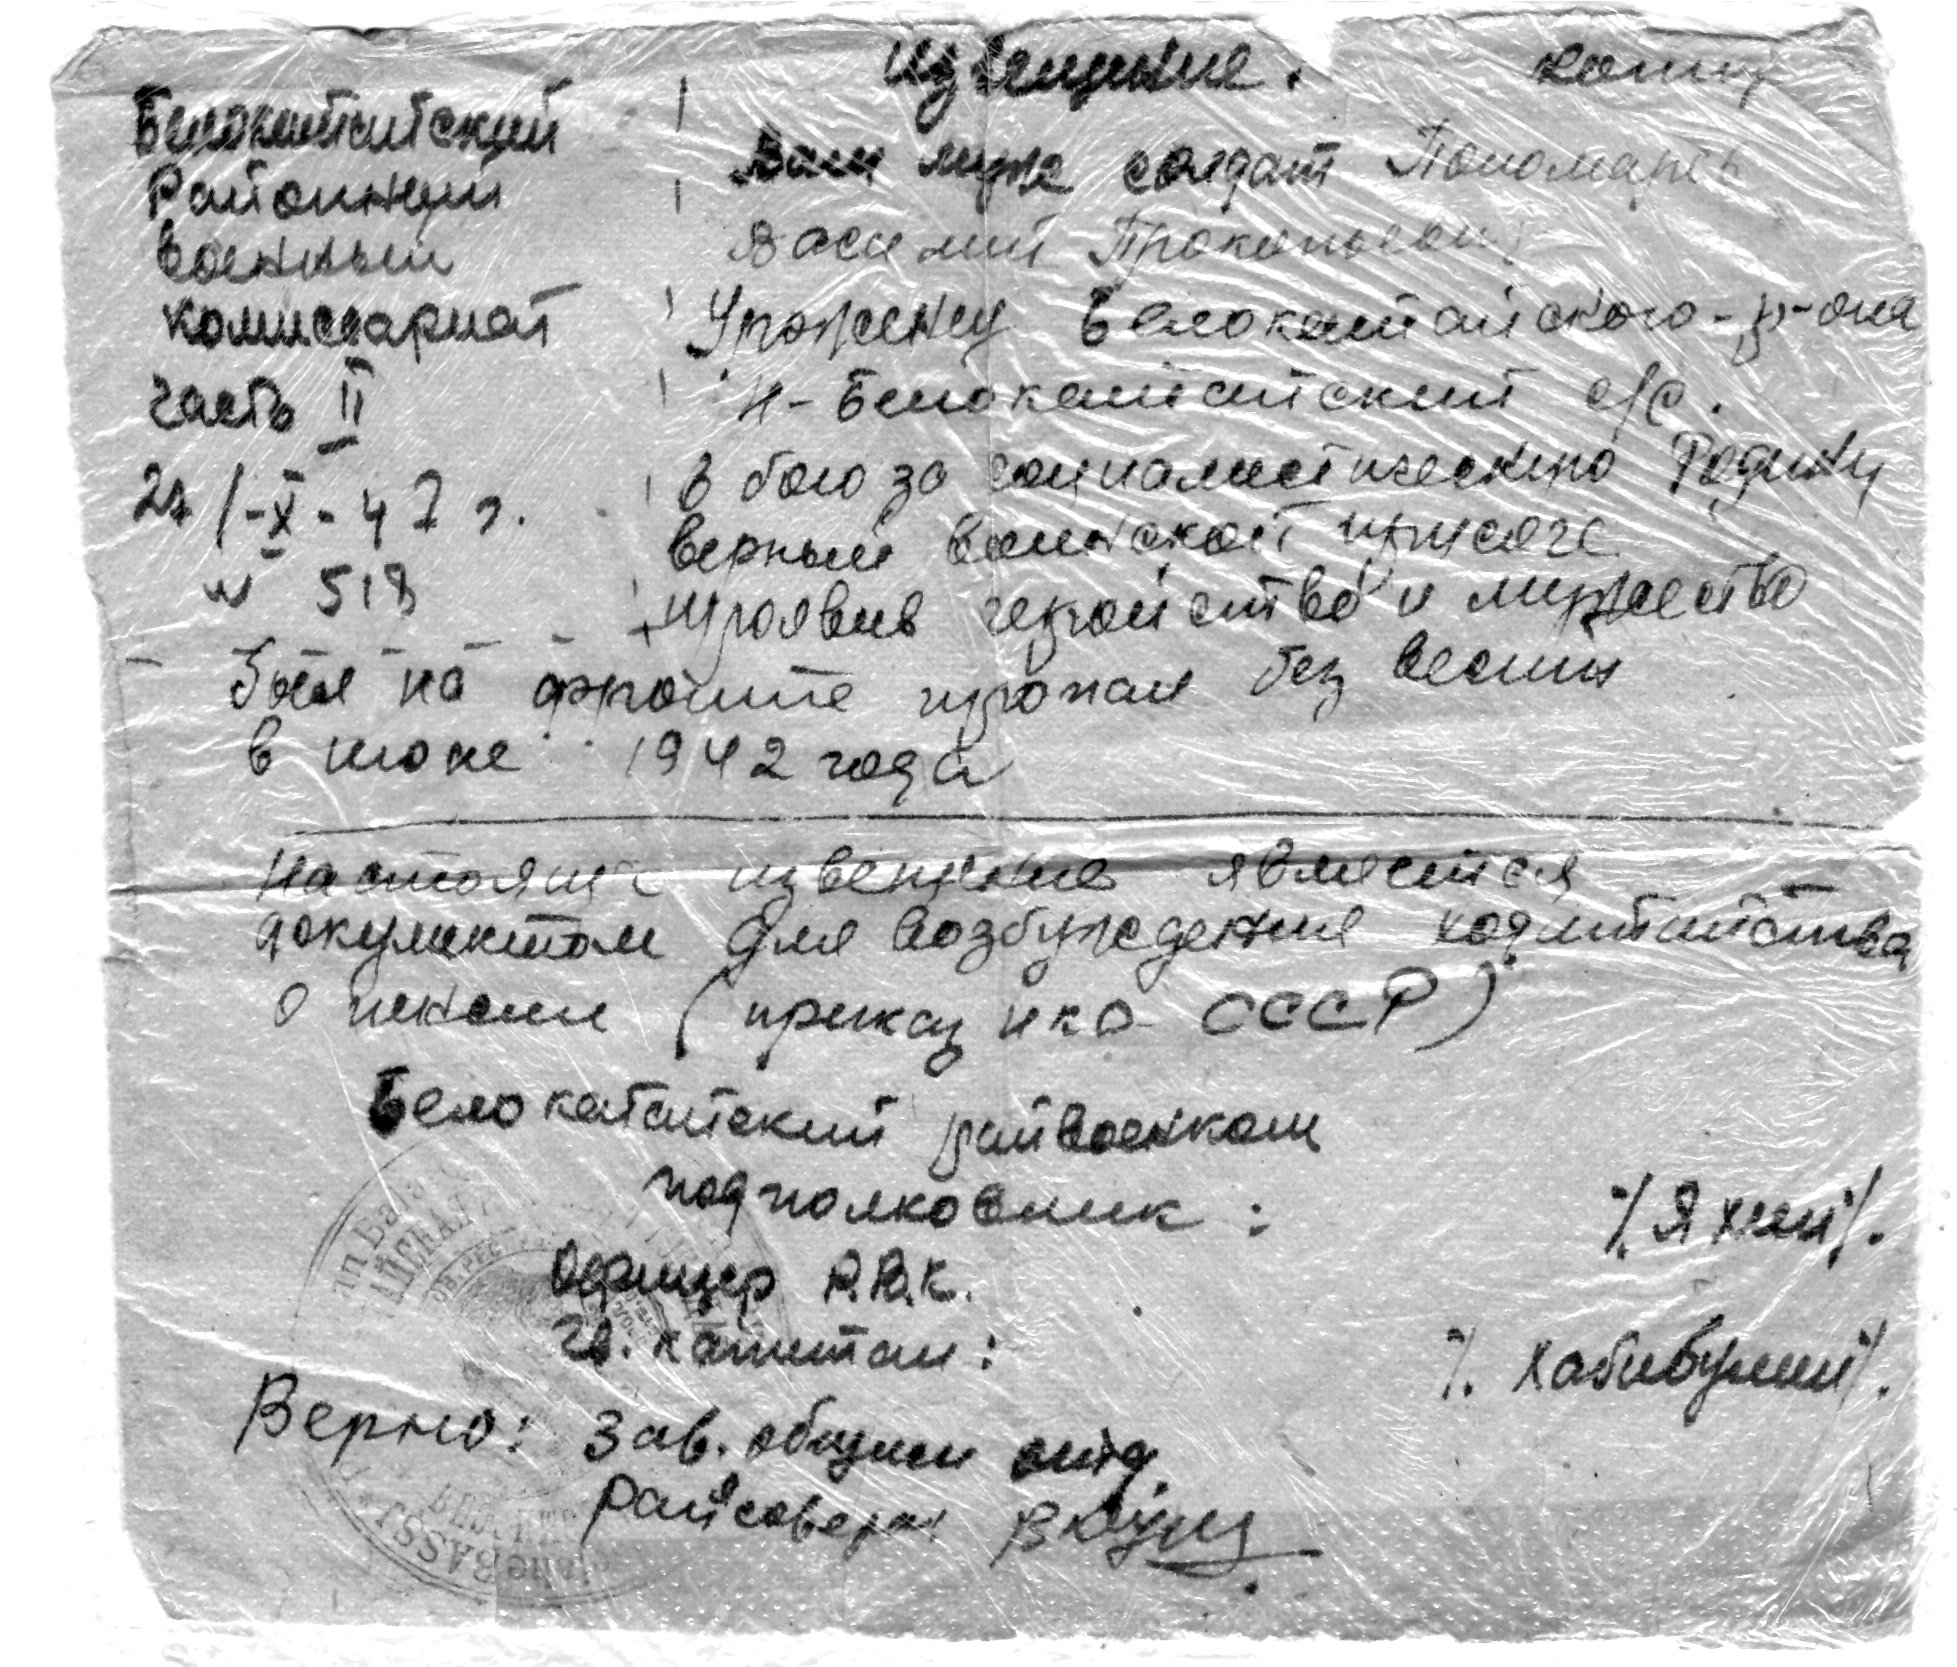 Извещение. копия
Белокатайский
Районный
военный
комиссариат
часть II
27/-X-47 г.
№ 518
Ваш муж солдат Пономарев
Василий Прокопьевич
Уроженец Белокатайского-р-она
Н-Белокатайский с/с.
в бою за социалистическую Родину
верный воинской присяге
проявив геройство и мужество
был на фронте пропал без вести
в июне 1942 года
Настоящее извещение является
документом для возбуждения ходатайства
о пенсии (приказ нко СССР)
Белокатайский райвоенком
подполковник: /Яхин/.
Офицер Р.В.К.
гв. капитан: /. Хабибулин/.
Верно: Зав. общим отд.
Райсовета